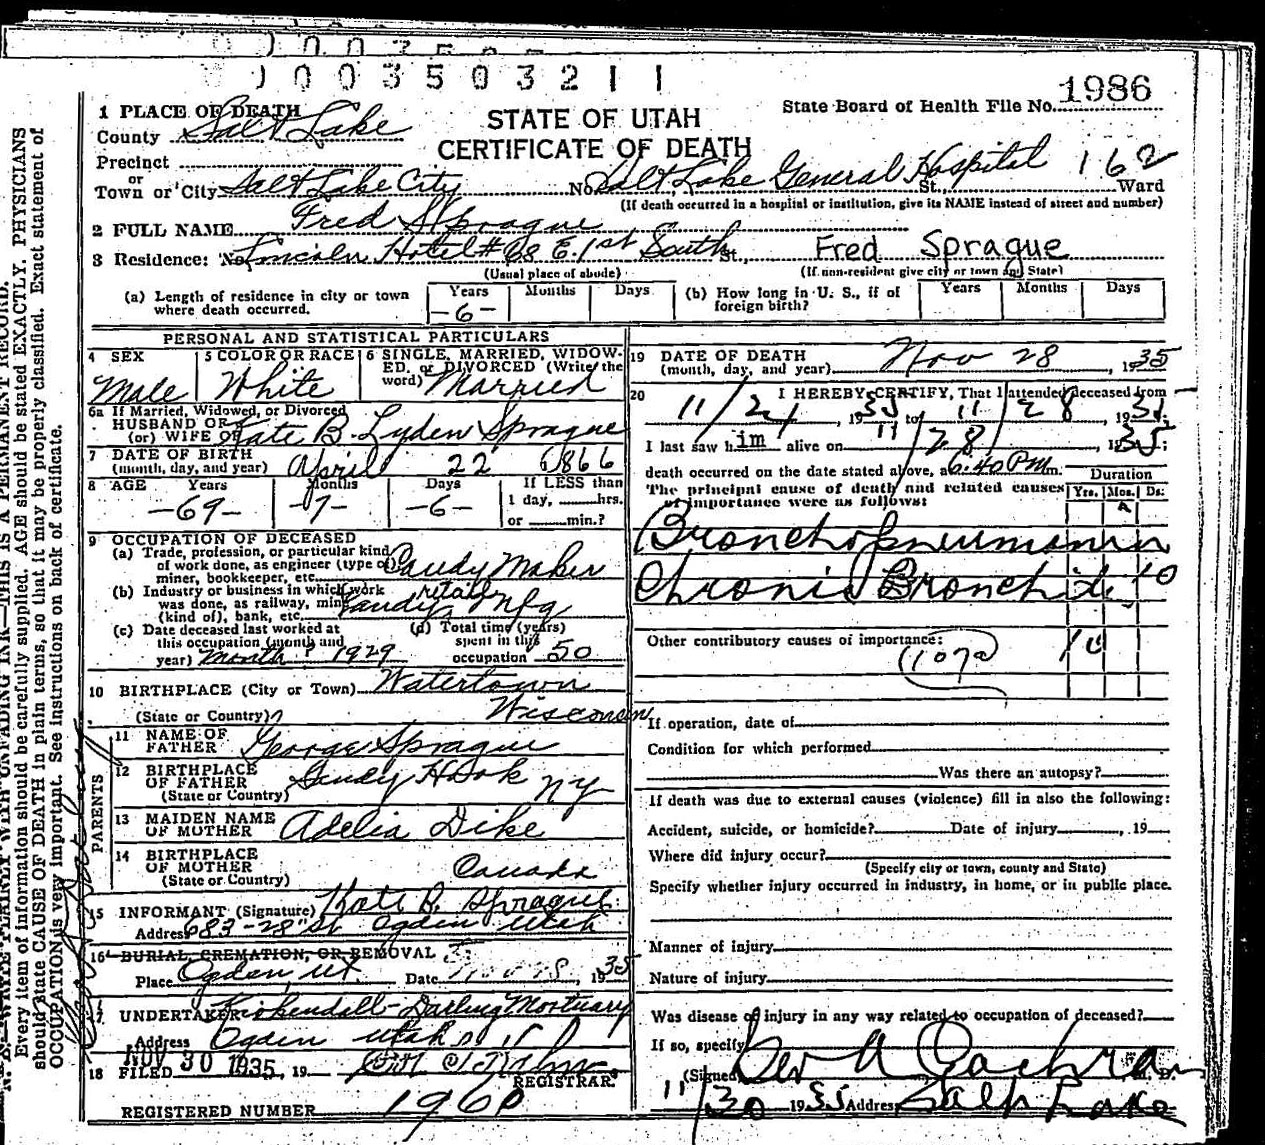 0003503211
1 PLACE OF DEATH
County Salt Lake
STATE OF UTAH
CERTIFICATE OF DEATH
State Board of Health File No. 1986
Precinct
or
Town or City Salt Lake City No. Salt Lake General Hospital St., 162 Ward
(If death occurred in a hospital or institution, give its NAME instead of street and number)
2 FULL NAME Fred Sprague
3 Residence: No. Lincoln Hotel #68 E. 1st South St., Fred Sprague
(Usual place of abode) (If non-resident give city or town and State)
(a) Length of residence in city or town where death occurred. Years -6- Months Days
(b) How long in U. S., if of foreign birth? Years Months Days
PERSONAL AND STATISTICAL PARTICULARS
4 SEX Male
5 COLOR OR RACE White
6 SINGLE, MARRIED, WIDOWED, or DIVORCED (Write the word) Married
6a If Married, Widowed, or Divorced
HUSBAND OF
(or) WIFE OF Kate B. Lyden Sprague
7 DATE OF BIRTH
(month, day, and year) April 22 1866
8 AGE Years -69- Months -7- Days -6- If LESS than 1 day, hrs. or min.?
9 OCCUPATION OF DECEASED
(a) Trade, profession, or particular kind of work done, as engineer (type of) miner, bookkeeper, etc. Candy Maker
(b) Industry or business in which work was done, as railway, mine (kind of), bank, etc. retail Candy Mfg
(c) Date deceased last worked at this occupation (month and year) Month ? 1929
(d) Total time (years) spent in this occupation 50
10 BIRTHPLACE (City or Town) Watertown
(State or Country) Wisconsin
PARENTS
11 NAME OF FATHER George Sprague
12 BIRTHPLACE OF FATHER (State or Country) Sandy Hook NY
13 MAIDEN NAME OF MOTHER Adelia Dike
14 BIRTHPLACE OF MOTHER (State or Country) Canada
15 INFORMANT (Signature) Kate B. Sprague
Address 683-28" St Ogden Utah
16 BURIAL, CREMATION, OR REMOVAL
Place Ogden, Ut Date 1935
17 UNDERTAKER Kirkendall-Darling Mortuary
Address Ogden Utah
18 FILED NOV 30 1935, 19
REGISTRAR.
REGISTERED NUMBER 1960
19 DATE OF DEATH
(month, day, and year) Nov 28, 1935
20 I HEREBY CERTIFY, That I attended deceased from
11/21, 1935 to 11/28, 1935
I last saw him alive on 11/28, 1935;
death occurred on the date stated above, at 6:40 PM m.
Duration
The principal cause of death and related causes of importance were as follows: Yrs. Mos. Ds.
Bronchopneumonia
Chronic Bronchitis 10
Other contributory causes of importance:
(107a)
10
If operation, date of
Condition for which performed
Was there an autopsy?
If death was due to external causes (violence) fill in also the following:
Accident, suicide, or homicide? Date of injury, 19
Where did injury occur?
(Specify city or town, county and State)
Specify whether injury occurred in industry, in home, or in public place.
Manner of injury
Nature of injury
Was disease of injury in any way related to occupation of deceased?
If so, specify
(Signed) Geo A Cochran M. D.
11/30 1935 Address Salt Lake
Every item of information should be carefully supplied. AGE should be stated EXACTLY. PHYSICIANS
should state CAUSE OF DEATH in plain terms, so that it may be properly classified. Exact statement of
OCCUPATION is very important. See instructions on back of certificate.